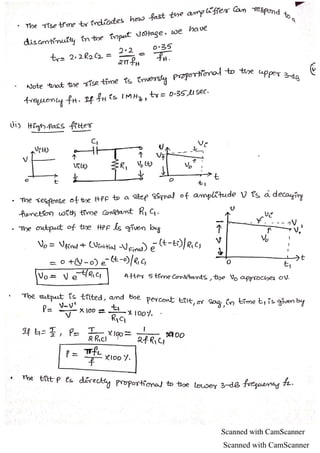 • The rise time tr indicates how fast the amplifier can respond to a
discontinuity in the input voltage. we have
tr = 2.2 R2C2 = 2.2 / 2πfH = 0.35 / fH.
• Note that the rise time is inversly proportional to the upper 3-dB
frequency fH. If fH is 1 MHz, tr = 0.35 μsec.
ii) High-pass filter
Vi(t) V 0 t
C1 Vi(t) R1 Vo(t)
V Vi V' Vo 0 t1 t
• The response of the HPF to a step signal of amplitude V is a decaying
function with time constant R1C1.
• The output of the HPF is given by
Vo = Vfinal + (Vinitial - Vfinal) e^-(t-ti)/R1C1
= 0 + (V-0) e^-(t-0)/R1C1
Vo = V e^-t/R1C1 After 5 time constants, the Vo approches 0V.
V Vi V V' Vo 0 t1 t
• The output is tilted, and the percent tilt, or sag, in time t1 is given by
P = V-V' / V × 100 = t1 / R1C1 × 100%.
If t1 = T/2, P = T / 2R1C1 × 100 = 1 / 2fR1C1 × 100
P = πfL / f × 100%.
• The tilt P is directly proportional to the lower 3-dB frequency fL.
Scanned with CamScanner
Scanned with CamScanner